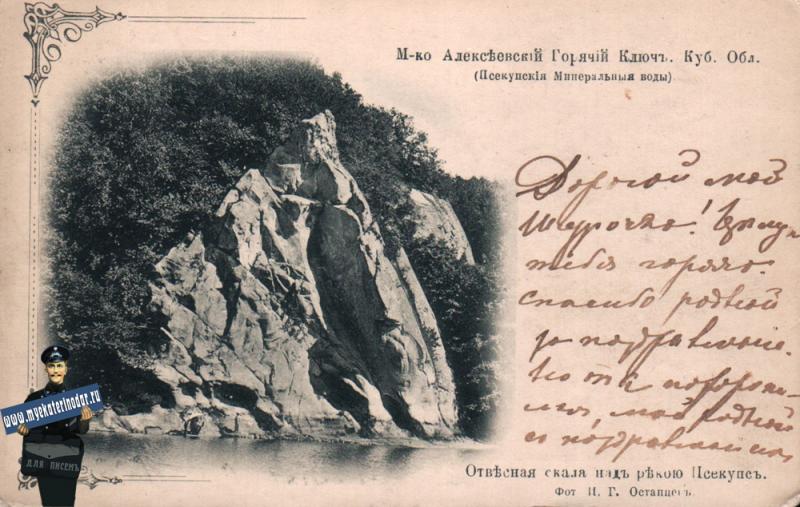 М-ко Алексѣевскій Горячій Ключъ. Куб. Обл.
(Псекупскія Минеральныя воды)
Дорогой мой
Шурочка! Цѣлую
тебя горячо.
спасибо родной
за поздравленіе.
мой родной
Отвѣсная скала надъ рѣкою Псекупсъ.
Фот И. Г. Остапцевъ
www.myekaterinodar.ru
ДЛЯ ПИСЕМЪ